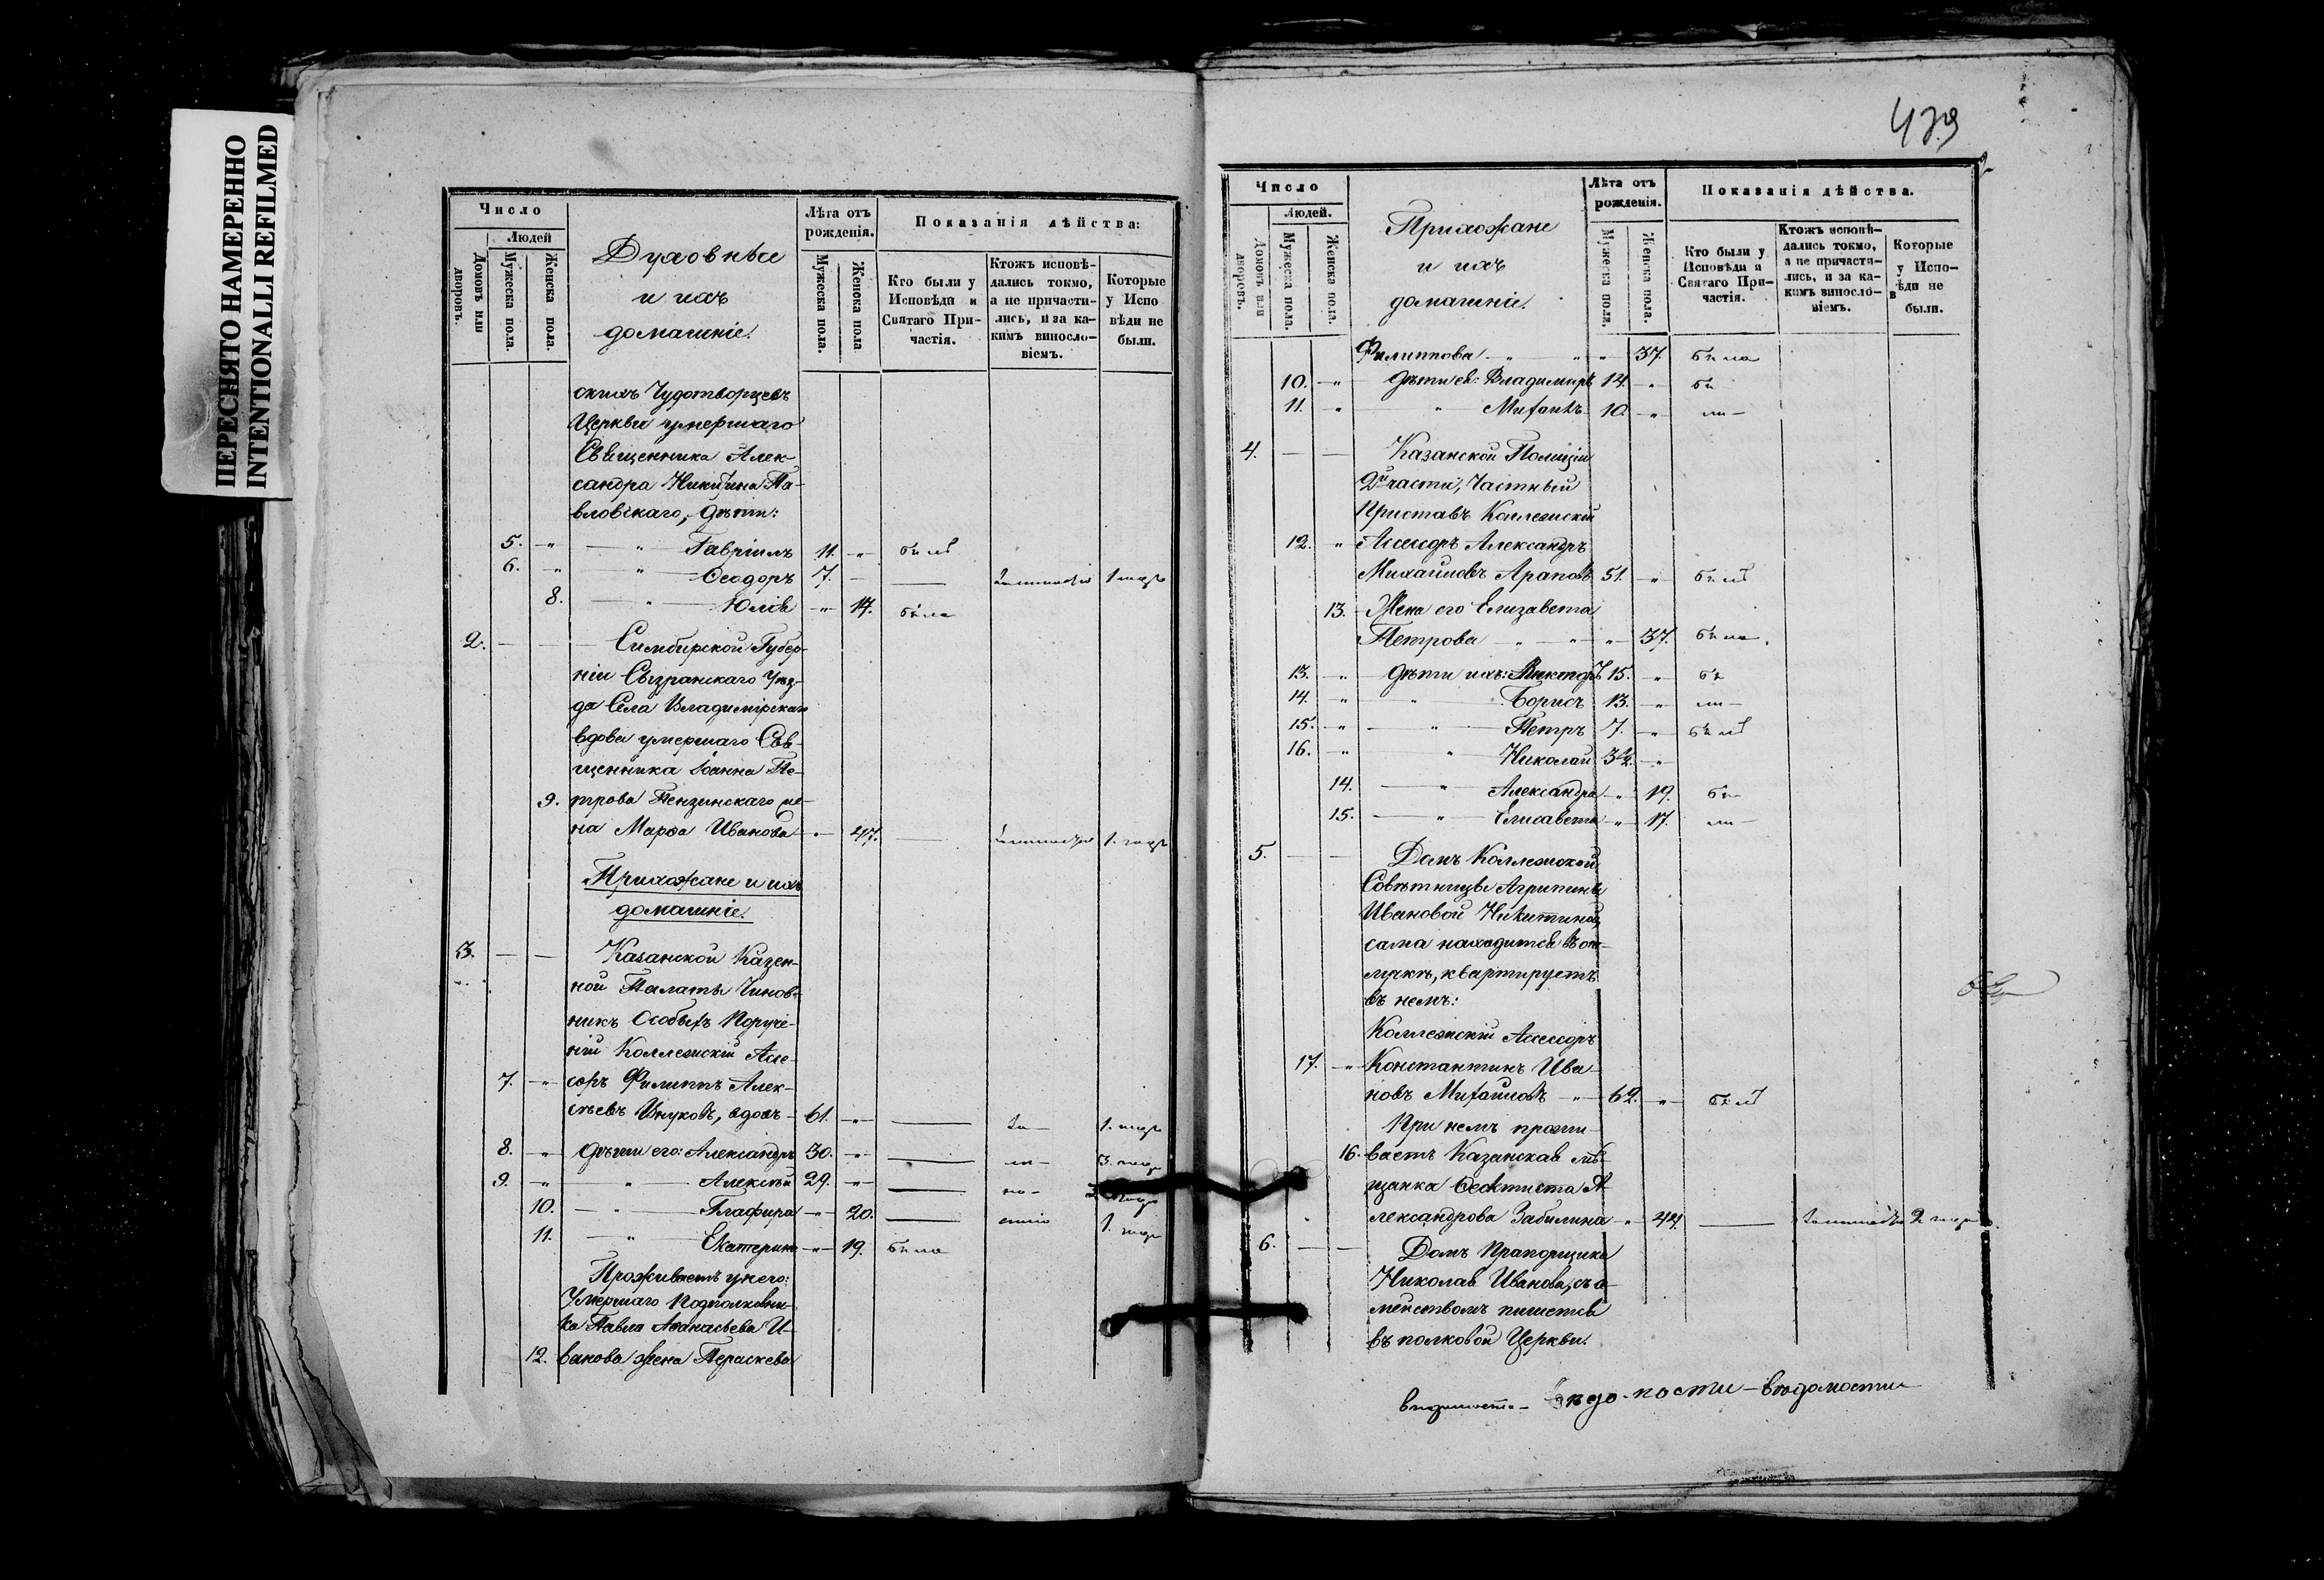 ПЕРЕСНЯТО НАМЕРЕННО
INTENTIONALLI REFILMED
Число
Людей
Домовъ или дворовъ.
Мужеска пола.
Женска пола.
Духовные
и ихъ
домашніе.
Лѣта отъ рожденія.
Мужеска пола.
Женска пола
Показанія дѣйства:
Кто были у Исповѣди и Святаго Причастія.
Ктожъ исповѣ-
дались токмо,
а не причасти-
лись, и за ка-
кимъ винносло-
віемъ.
Которые
у Испо
вѣди не
были.
скихъ Чудотворцевъ
Церкви умершаго
Священника Алек-
сандра Никитина Па-
вловскаго, дѣти:
5. " — " — Гавріилъ 11. " былъ
6. " " — Ѳеодоръ 7. — —
8. — " — Юлія " 14. была
2. — — Симбирской Губер-
ніи Сызранскаго Уѣз-
да Села Владимірскаго
вдова умершаго Свя-
щенника Іоанна Пе-
9. трова Пензинскаго же-
на Марѳа Иванова " 47. —
Прихожане и ихъ
домашніе.
3. — — Казанской Казен-
ной Палаты Чинов-
никъ Особыхъ Поруче-
ній Коллежскій Ассе-
7. " соръ Филиппъ Алек-
сѣевъ Внуковъ, вдовъ 61. " —
8. " Дѣти его: Александръ 30. " —
9. " " — Алексѣй 29. " —
10. — " — Глафира " 20. —
11. — " — Екатерина " 19. была
Проживаетъ у него:
Умершаго Подполковни-
ка Павла Аѳанасьева И-
12. ванова жена Параскева
439
Число
Людей.
Домовъ или дворовъ.
Мужеска пола.
Женска пола.
Прихожане
и ихъ
домашніе.
Лѣта отъ рожденія.
Мужеска пола.
Женска пола.
Показанія дѣйства.
Кто были у
Исповѣди и
Святаго При-
частія.
Ктожъ исповѣ-
дались токмо,
а не причасти-
лись, и за ка-
кимъ винносло-
віемъ.
Которые
у Испо-
вѣди не
были.
Филиппова " " " 37. была
10. " Дѣти ея: Владиміръ 14. " бы
11. " " Михаилъ 10. " ли
4. — — Казанской Полиціи
2й части, Частный
Приставъ Коллежскій
12. " Ассесоръ Александръ
Михайловъ Араповъ 51. " былъ
13. Жена его Елизавета
Петрова " " " 37. была.
13. " Дѣти ихъ: Викторъ 15. " бы
14. " " Борисъ 13. " ли
15. " — " — Петръ 7. " былъ
16. " " Николай 3½ "
14. — " Александра " 19. бы
15. — " — Елисавета " 17. ли
5. — — Домъ Коллежской
Совѣтницы Агрипины
Ивановой Никитиной,
сама находится въ от-
лучкѣ, квартируетъ
въ немъ:
Коллежскій Ассесоръ
17. " Константинъ Ива-
новъ Михайловъ " 62. " былъ
При немъ прожи-
16. ваетъ Казанская мѣ-
щанка Ѳеоктиста А-
лександрова Забилина " 44. —
6. — — Домъ Прапорщика
Николая Иванова, съ се-
мействомъ пишется
въ полковой Церкви.